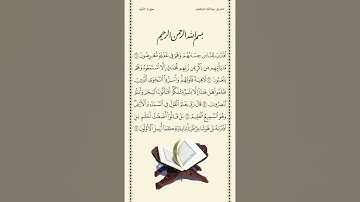 بِسْمِ اللَّهِ الرَّحْمَٰنِ الرَّحِيمِ
اقْتَرَبَ لِلنَّاسِ حِسَابُهُمْ وَهُمْ فِي غَفْلَةٍ مُعْرِضُونَ ١
مَا يَأْتِيهِمْ مِنْ ذِكْرٍ مِنْ رَبِّهِمْ مُحْدَثٍ إِلَّا اسْتَمَعُوهُ وَهُمْ
يَلْعَبُونَ ٢ لَاهِيَةً قُلُوبُهُمْ وَأَسَرُّوا النَّجْوَى الَّذِينَ
ظَلَمُوا هَلْ هَٰذَا إِلَّا بَشَرٌ مِثْلُكُمْ أَفَتَأْتُونَ السِّحْرَ وَأَنْتُمْ
تُبْصِرُونَ ٣ قَالَ رَبِّي يَعْلَمُ الْقَوْلَ فِي السَّمَاءِ وَالْأَرْضِ
وَهُوَ السَّمِيعُ الْعَلِيمُ ٤ بَلْ قَالُوا أَضْغَاثُ أَحْلَامٍ بَلِ
افْتَرَاهُ بَلْ هُوَ شَاعِرٌ فَلْيَأْتِنَا بِآيَةٍ كَمَا أُرْسِلَ الْأَوَّلُونَ